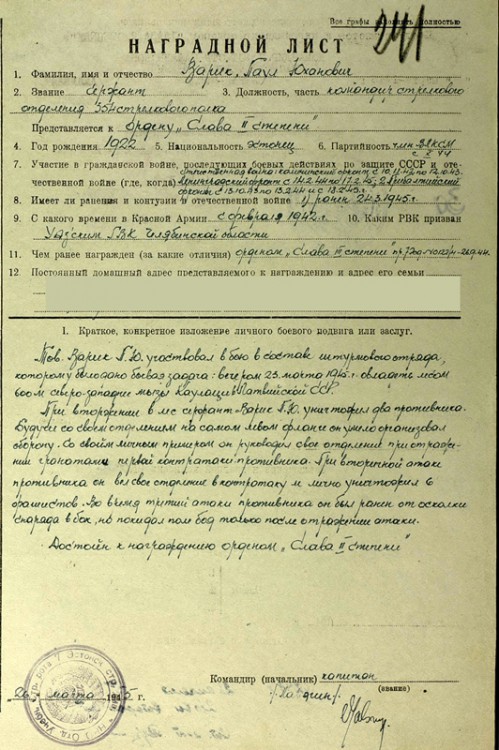 Все графы заполнять полностью
241
НАГРАДНОЙ ЛИСТ
1. Фамилия, имя и отчество Варик, Паул Юханович
2. Звание Сержант 3. Должность, часть командир стрелкового
отделения 354 стрелкового полка
Представляется к ордену „Слава II степени"
4. Год рождения 1922 5. Национальность эстонец 6. Партийность член ВЛКСМ
7. Участие в гражданской войне, последующих боевых действиях по защите СССР и оте-
чественной войне (где, когда) Отечественная война: Калининский фронт с
Ленинградский фронт с 2 Прибалтийский
фронт с
8. Имеет ли ранения и контузии в отечественной войне 1) ранен 24.3.1945 г.
9. С какого времени в Красной Армии с февраля 1942 г. 10. Каким РВК призван
РВК Челябинской области
11. Чем ранее награжден (за какие отличия) орденом „Слава III степени"
12. Постоянный домашний адрес представляемого к награждению и адрес его семьи
I. Краткое, конкретное изложение личного боевого подвига или заслуг.
Тов. Варик П.Ю. участвовал в бою в составе штурмового отряда,
которому было дано боевая задача: вечером 23. марта 1945 г. овладеть лесом
600 м северо-западне мызы Каулаци Латвийской ССР.
При вторжении в лес сержант Варик П.Ю. уничтожил два противника.
Будучи со своем отделением на самом левом фланги он умело организовал
оборону. Со своим личным примером он руководил свое отделения при отраже-
нии гранатами первой контратаки противника. При вторичной атаки
противника он вел свое отделение в контратаку и лично уничтожил 6
фашистов. Во время третий атаки противника он был ранен от осколки
снаряда в бок, но покидал поле бой только после отражении атаки.
Достоин к награждению орденом „Слава II степени"
Командир (начальник) капитан
(звание)
26 марта 1945 г.